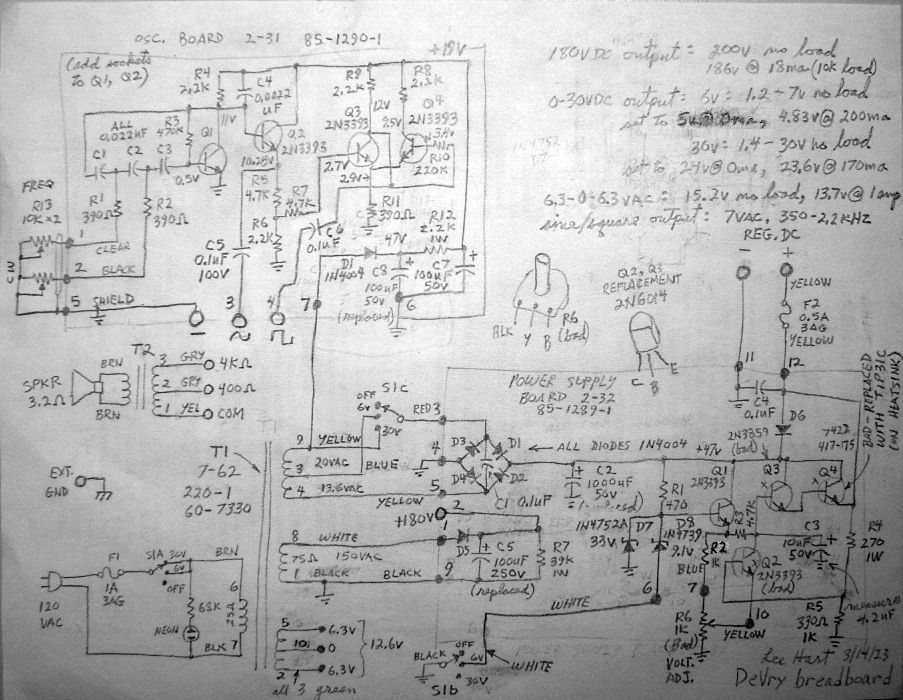 OSC. BOARD 2-31 85-1290-1
(add sockets
to Q1, Q2)
+19V
R4
2.2K
C4
0.0022
uF
11V
R9
2.2K
12V
R8
2.2K
Q4
2N3393
3.4V
R10
220K
ALL
0.022uF
C1
C2
C3
R3
470K
Q1
0.5V
Q2
2N3393
10.25V
Q3
2N3393
9.5V
2.7V
2.9V
R5
4.7K
R7
4.7K
R6
2.2K
C6
0.1uF
R11
390Ω
R12
2.2K
1W
47V
D1
1N4004
C8
100uF
50V
(replaced)
C7
100uF
50V
6
7
FREQ
R13
10K x2
CW
R1
390Ω
R2
390Ω
1
CLEAR
2
BLACK
5
SHIELD
C5
0.1uF
100V
3
4
180VDC output: 200V no load
186v @ 18ma (10k load)
0-30VDC output: 6v: -1.2 - 7v no load
set to 5v@0ma, 4.83v@ 200ma
30v: 1.4 - 30v no load
set to 24v@0ma, 23.6v@170ma
6.3-0-6.3VAC: 15.2v no load, 13.7v@ 1amp
sine/square output: 7VAC, 350-2.2KHz
REG. DC
-
+
YELLOW
F2
0.5A
3AG
YELLOW
11
12
Q2, Q3
REPLACEMENT
2N6014
C
B
E
BLK
Y
B
R6
(bad)
T2
BRN
SPKR
3.2Ω
BRN
3 GRY 4KΩ
2 GRY 400Ω
1 YEL COM
EXT.
GND
T1
7-62
220-1
60-7330
S1c
OFF
6v
30V
RED 3
9
YELLOW
3
20VAC
BLUE
4
4
13.6VAC
YELLOW
5
POWER SUPPLY
BOARD 2-32
85-1289-1
D3
D1
D4
D2
ALL DIODES 1N4004
C1 0.1uF
+180V
2
1
8
WHITE
75Ω
150VAC
1
BLACK
BLACK
9
D5
C5
100uF
250V
(replaced)
R7
39K
1W
C2
1000uF
50V
+47V
R1
470
1N4752A
33V
D7
D8
1N4739
9.1V
6
WHITE
Q1
2N3393
2N3859
(bad)
Q3
7422
417-175
Q4
BAD-REPLACED
WITH TIP31C
(ON HEATSINK)
C4
0.1uF
D6
R3
4.7K
R2
1K
BLUE
7
Q2
2N3393
(bad)
C3
10uF
50V
R4
270
1W
measures
4.2uF
R5
330Ω
1K
R6
1K
(Bad)
VOLT.
ADJ.
10
YELLOW
F1
1A
3AG
S1A
30V
6v
OFF
BRN
6
120
VAC
68K
NEON
25Ω
BLK 7
5
6.3V
10
0
2
6.3V
12.6V
all 3 green
BLACK
OFF
6v
30V
S1b
WHITE
Lee Hart 3/14/23
DeVry breadboard